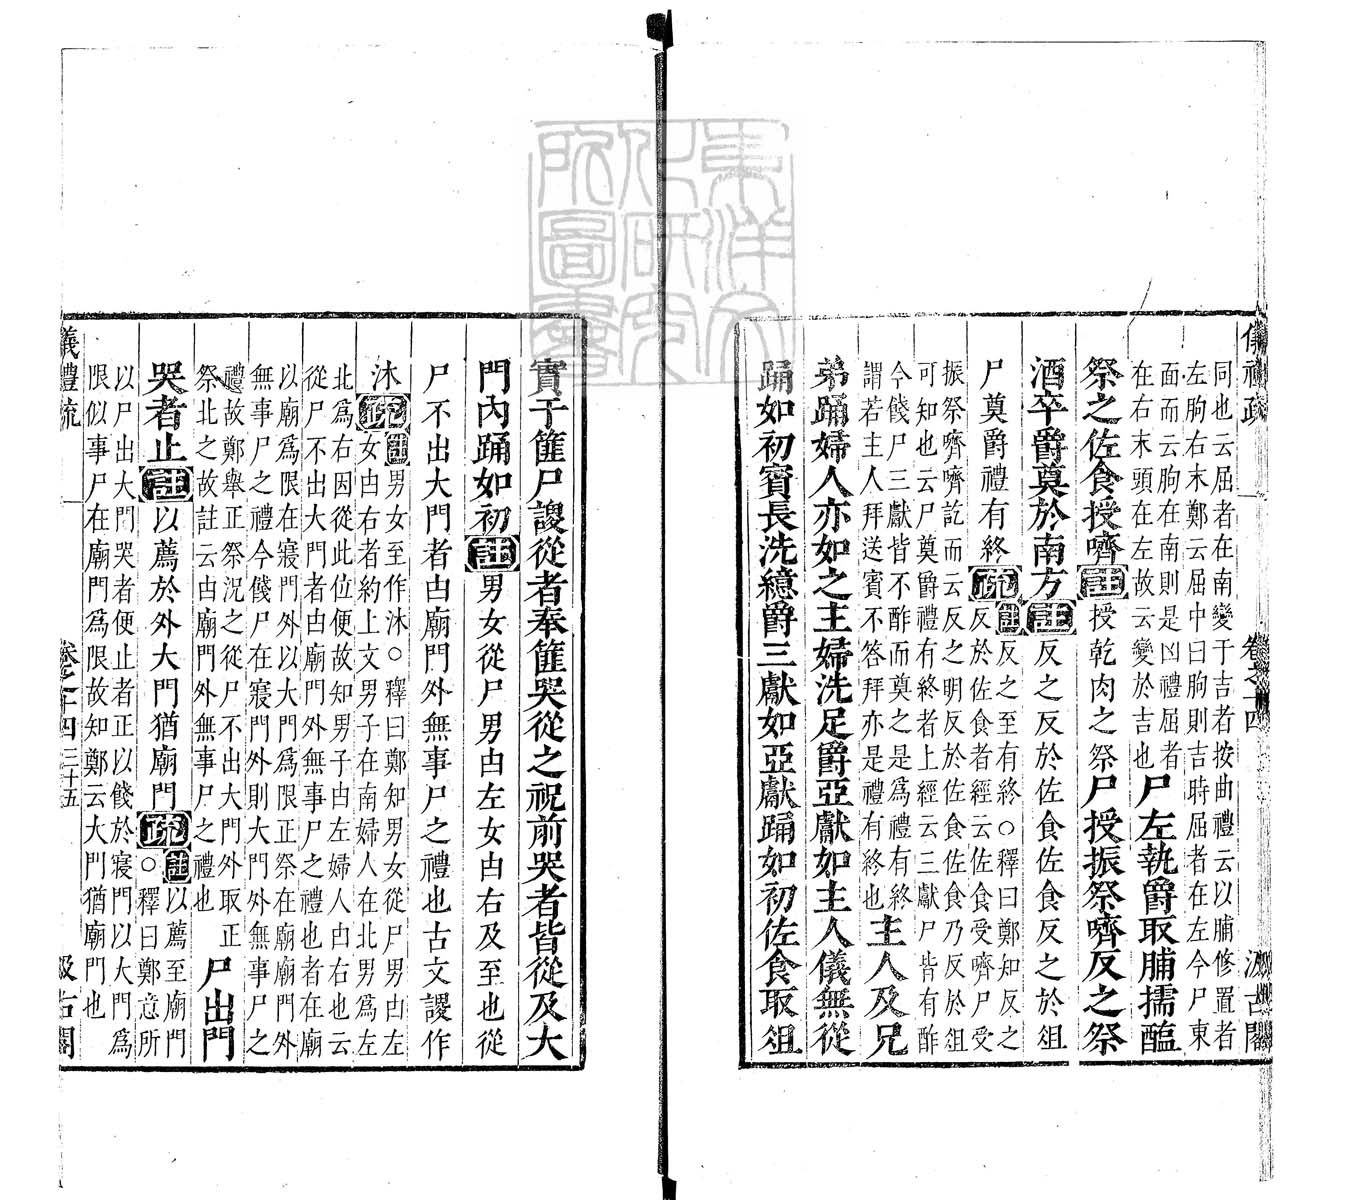 儀禮疏 卷之十四 汲古閣
同也云屈者在南變于吉者按曲禮云以脯修置者
左朐右末鄭云屈中曰朐則吉時屈者在左今尸東
面而云朐在南則是凶禮屈者
在右末頭在左故云變於吉也
尸左執爵取脯擩醢
祭之佐食授嚌註授乾肉之祭尸授振祭嚌反之祭
酒卒爵奠於南方註反之反於佐食佐食反之於俎
尸奠爵禮有終疏註反之至有終○釋曰鄭知反之
反於佐食者經云佐食受嚌尸受
振祭嚌嚌訖而云反之明反於佐食佐食乃反於俎
可知也云尸奠爵禮有終者上經云三獻尸皆有酢
今餞尸三獻皆不酢而奠之是爲禮有終
謂若主人拜送賓不答拜亦是禮有終也
主人及兄
弟踊婦人亦如之主婦洗足爵亞獻如主人儀無從
踊如初賓長洗繶爵三獻如亞獻踊如初佐食取俎
實于篚尸謖從者奉篚哭從之祝前哭者皆從及大
門內踊如初註男女從尸男由左女由右及至也從
尸不出大門者由廟門外無事尸之禮也古文謖作
沐疏註男女至作沐○釋曰鄭知男女從尸男由左
女由右者約上文男子在南婦人在北男爲左
北爲右因從此位便故知男子由左婦人由右也云
從尸不出大門者由廟門外無事尸之禮也者在廟
以廟爲限在寢門外以大門爲限正祭在廟廟門外
無事尸之禮今餞尸在寢門外則大門外無事尸之
禮故鄭舉正祭況之從尸不出大門外取正
祭北之故註云由廟門外無事尸之禮也
尸出門
哭者止註以薦於外大門猶廟門疏註以薦至廟門
○釋曰鄭意所
以尸出大門哭者便止者正以餞於寢門以大門爲
限似事尸在廟門爲限故知鄭云大門猶廟門也
儀禮疏 卷之十四 三十五 汲古閣
東洋文化研究所圖書